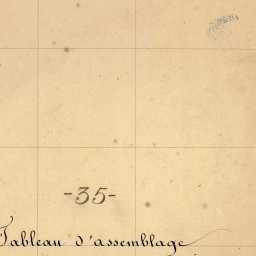 -35-
Tableau d'assemblage